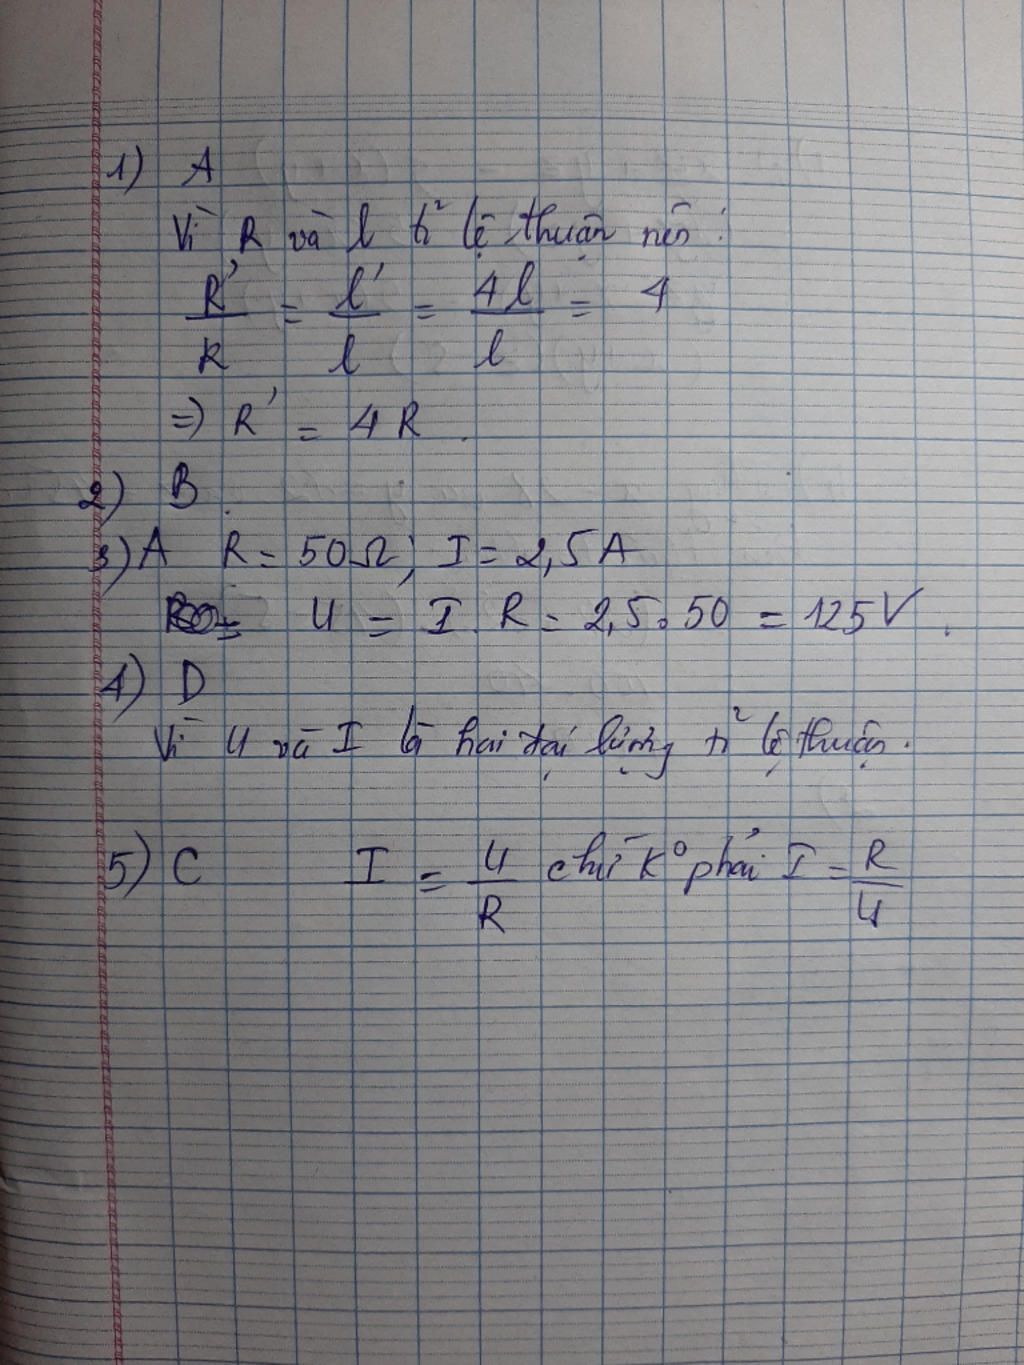 1) A
Vì R và l tỉ lệ thuận nên:
R'/R = l'/l = 4l/l = 4
=> R' = 4R.
2) B.
3) A R = 50Ω; I = 2,5A
U = I.R = 2,5.50 = 125V.
4) D
Vì U và I là hai đại lượng tỉ lệ thuận.
5) C I = U/R chứ K° phải I = R/U